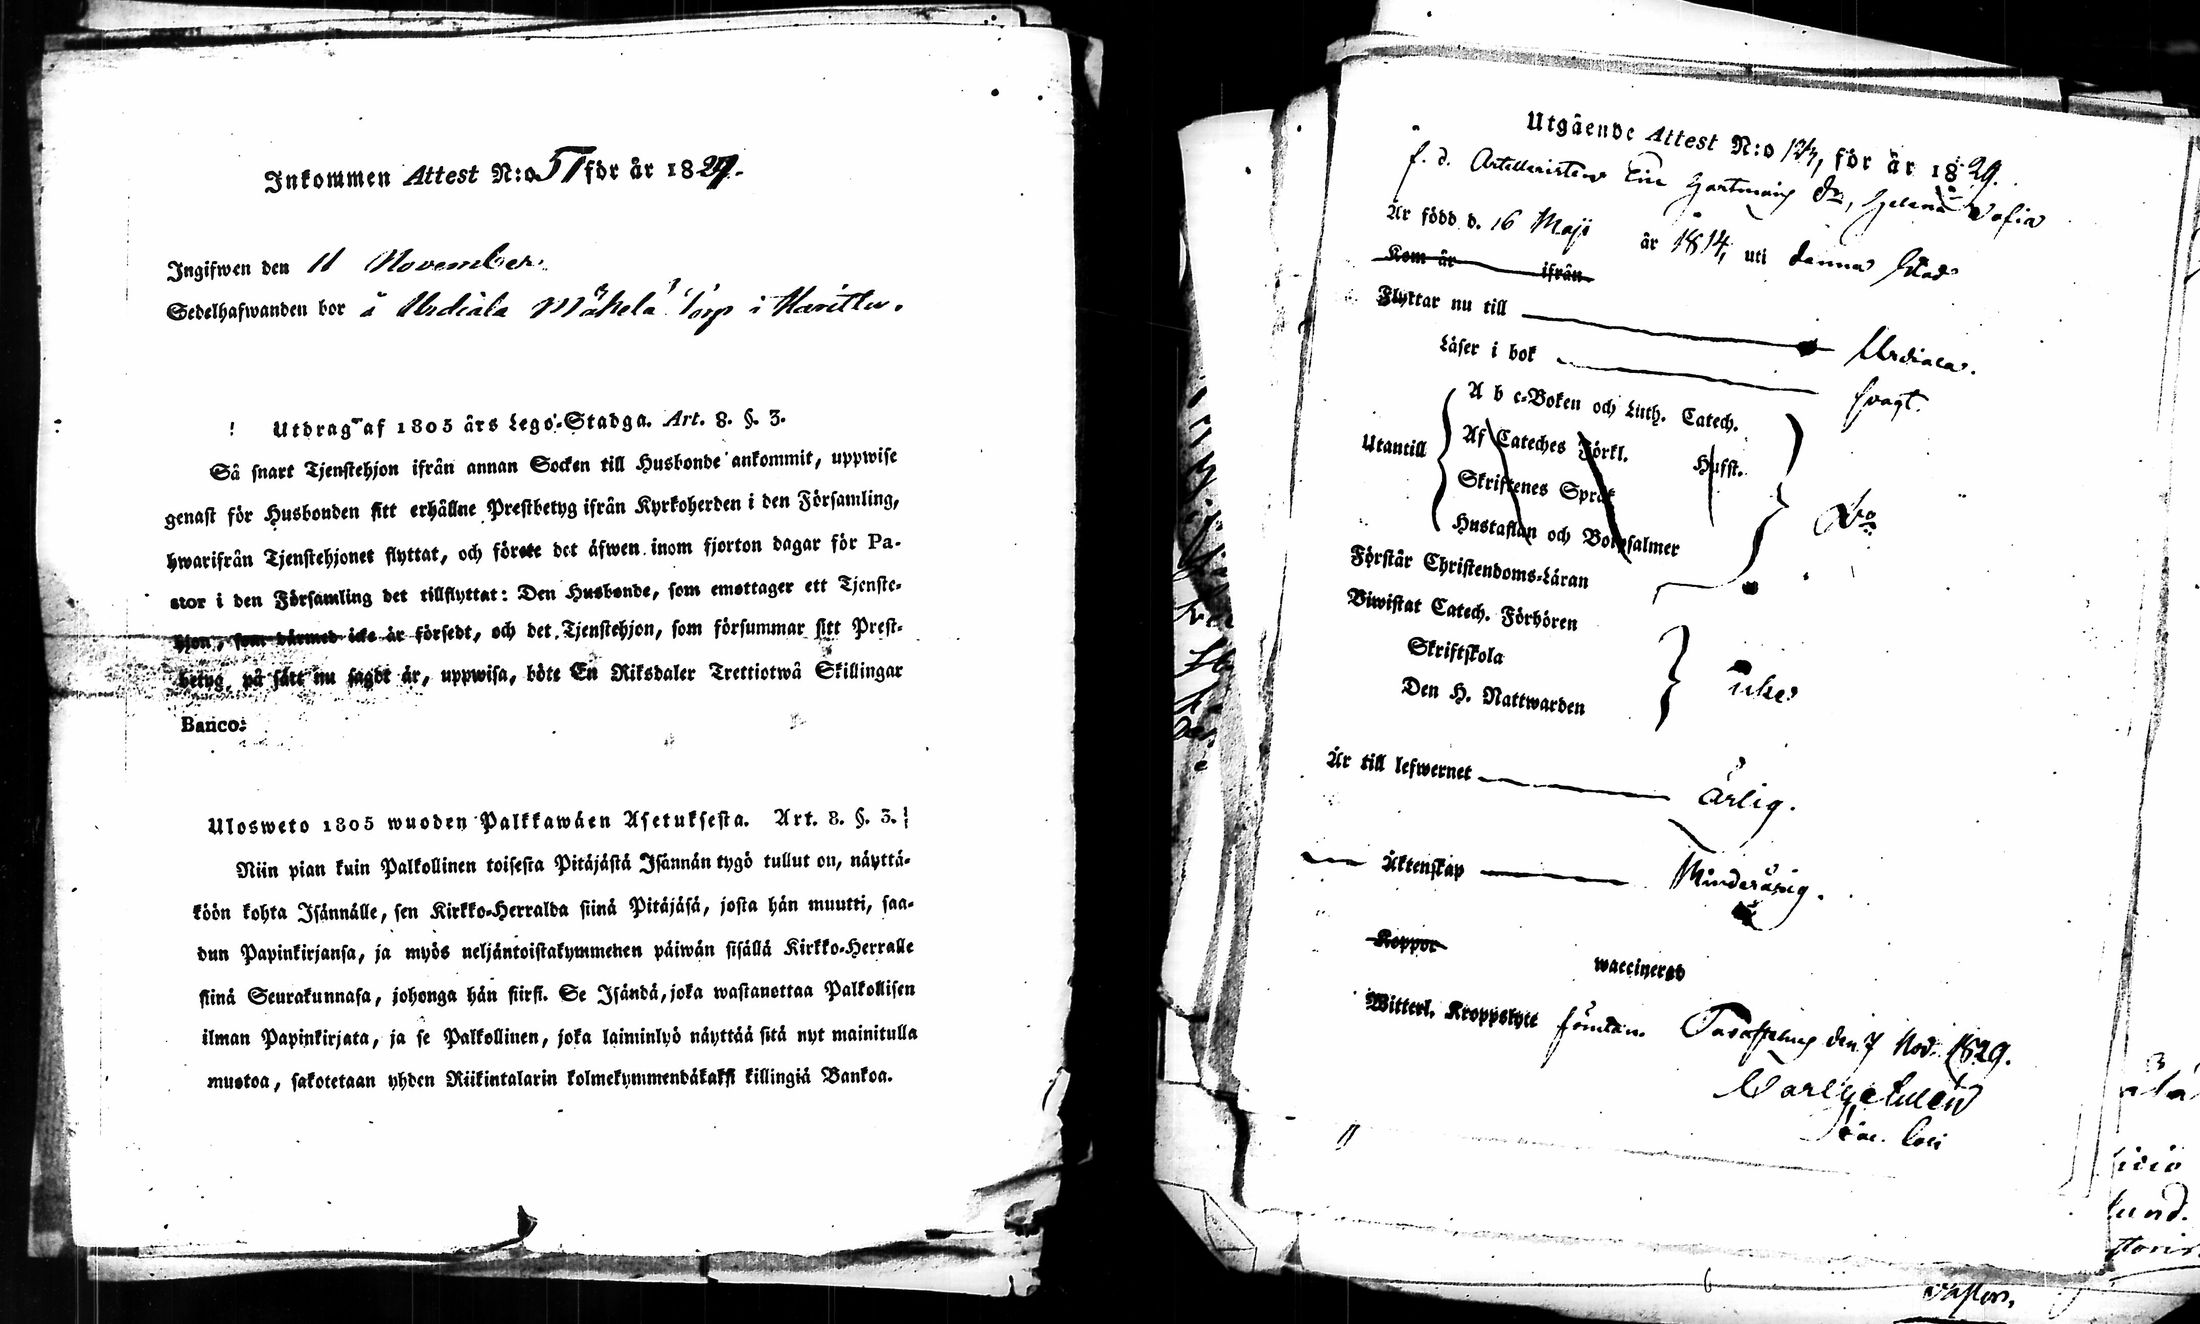 Inkommen Attest N:o 51 för år 1829.
Ingifwen den 11 November.
Sedelhafwanden bor å Urdiala Mäkelä Torp i
Utdrag af 1805 års Lego-Stadga. Art. 8. §. 3.
Så snart Tjenstehjon ifrån annan Socken till Husbonde ankommit, uppwise
genast för Husbonden sitt erhållne Prestbetyg ifrån Kyrkoherden i den Församling,
hwarifrån Tjenstehjonet flyttat, och förete det äfwen inom fjorton dagar för Pa-
stor i den Församling det tillflyttat: Den Husbonde, som emottager ett Tjenste-
hjon, som därmed icke är försedt, och det Tjenstehjon, som försummar sitt Prest-
betyg, på sätt nu sagdt är, uppwisa, böte En Riksdaler Trettiotwå Skillingar
Banco.
Ulosweto 1805 wuoden Palkkawäen Asetuksesta. Art. 8. §. 3.
Niin pian kuin Palkollinen toisesta Pitäjästä Isännän tygö tullut on, näyttä-
köön kohta Isännälle, sen Kirkko-Herralda siinä Pitäjäsä, josta hän muutti, saa-
dun Papinkirjansa, ja myös neljäntoistakymmenen päiwän sisällä Kirkko-Herralle
siinä Seurakunnasa, johonga hän siirsi. Se Isändä, joka wastanottaa Palkollisen
ilman Papinkirjata, ja se Palkollinen, joka laiminlyö näyttää sitä nyt mainitulla
muotoa, sakotetaan yhden Riikintalarin kolmekymmendäkaksi killingiä Bankoa.
Utgående Attest N:o för år 1829.
f. d. Artelleristen Hartmans Dr, Helena Sofia
Är född d. 16 Maji år 1814, uti denna Stad
Kom år ifrån
Flyttar nu till Urdiala.
Läser i bok svagt.
A b c-Boken och Luth. Catech.
Utantill Af Cateches Förkl. Hufft.
Skriftenes Språk
Hustaflan och Botpsalmer Do
Förstår Christendoms-Läran
Biwistat Catech. Förhören
Skriftskola icke
Den H. Nattwarden
Är till lefwernet ärlig.
Äktenskap Minderårig.
Koppor waccinerad
Witterl. Kroppslyte Tavastehus den 7 Nov. 1829.